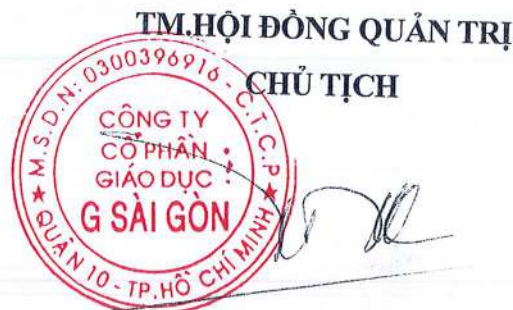 TM.HỘI ĐỒNG QUẢN TRỊ
CHỦ TỊCH
M.S.D.N: 0300396916 - C.T.C.P
CÔNG TY
CỔ PHẦN
GIÁO DỤC
G SÀI GÒN
QUẬN 10 - TP.HỒ CHÍ MINH